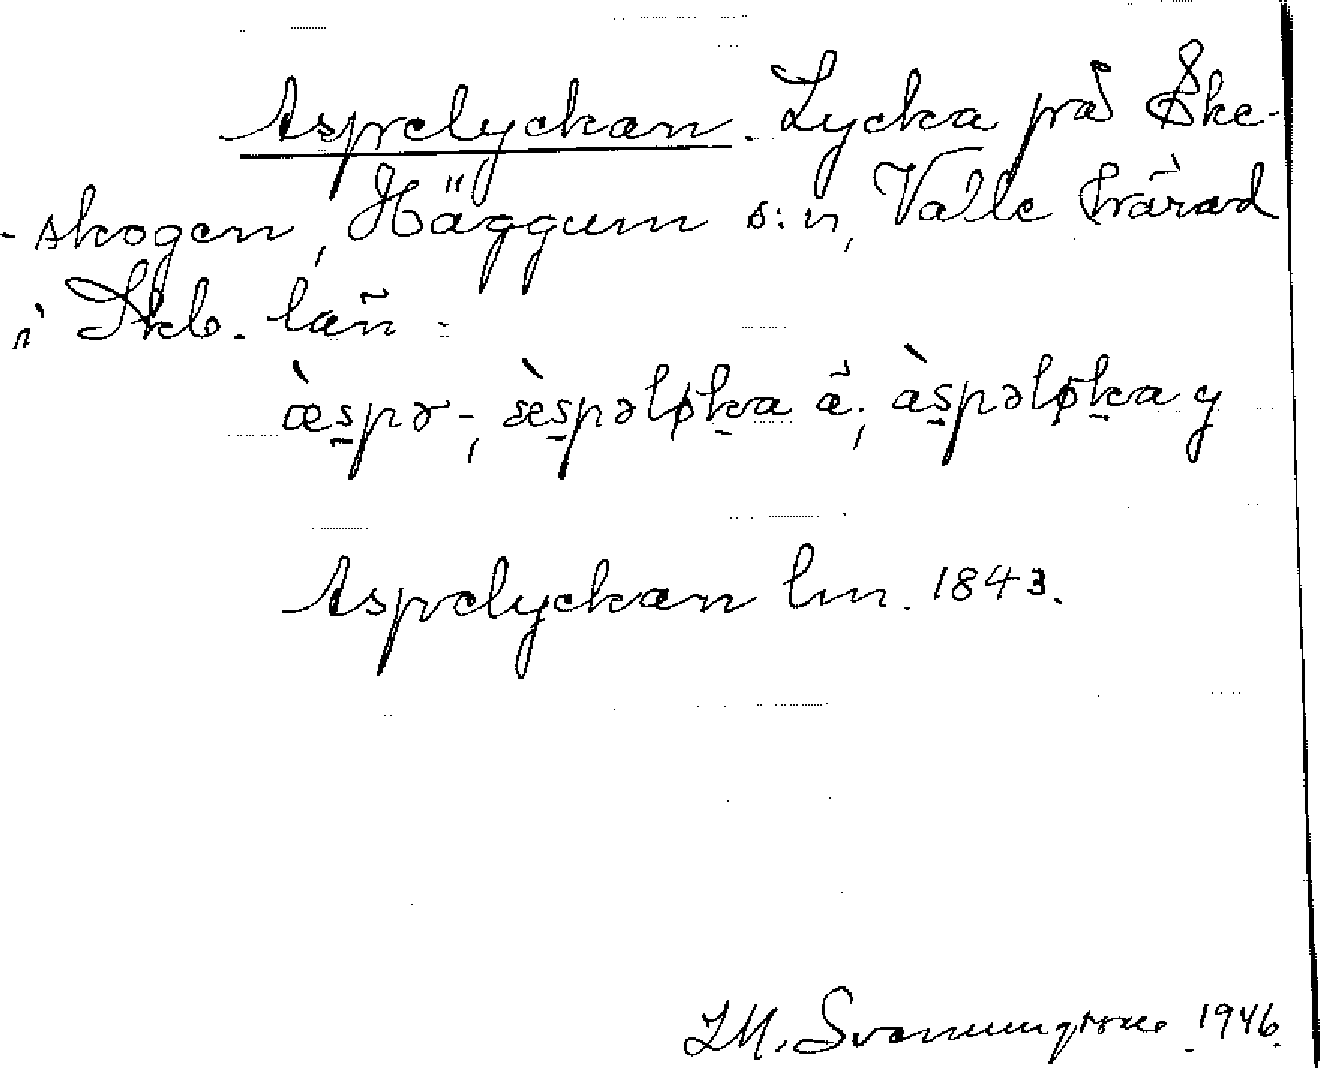 Aspelyckan. Lycka på Ske-
-skogen, Häggum s:n, Valle härad
i Skb. län:
æ̀s̱pə-, æ̀s̱pəlɸḵa ä; às̱pəlɸḵa y
Aspelyckan lm. 1843.
1946.